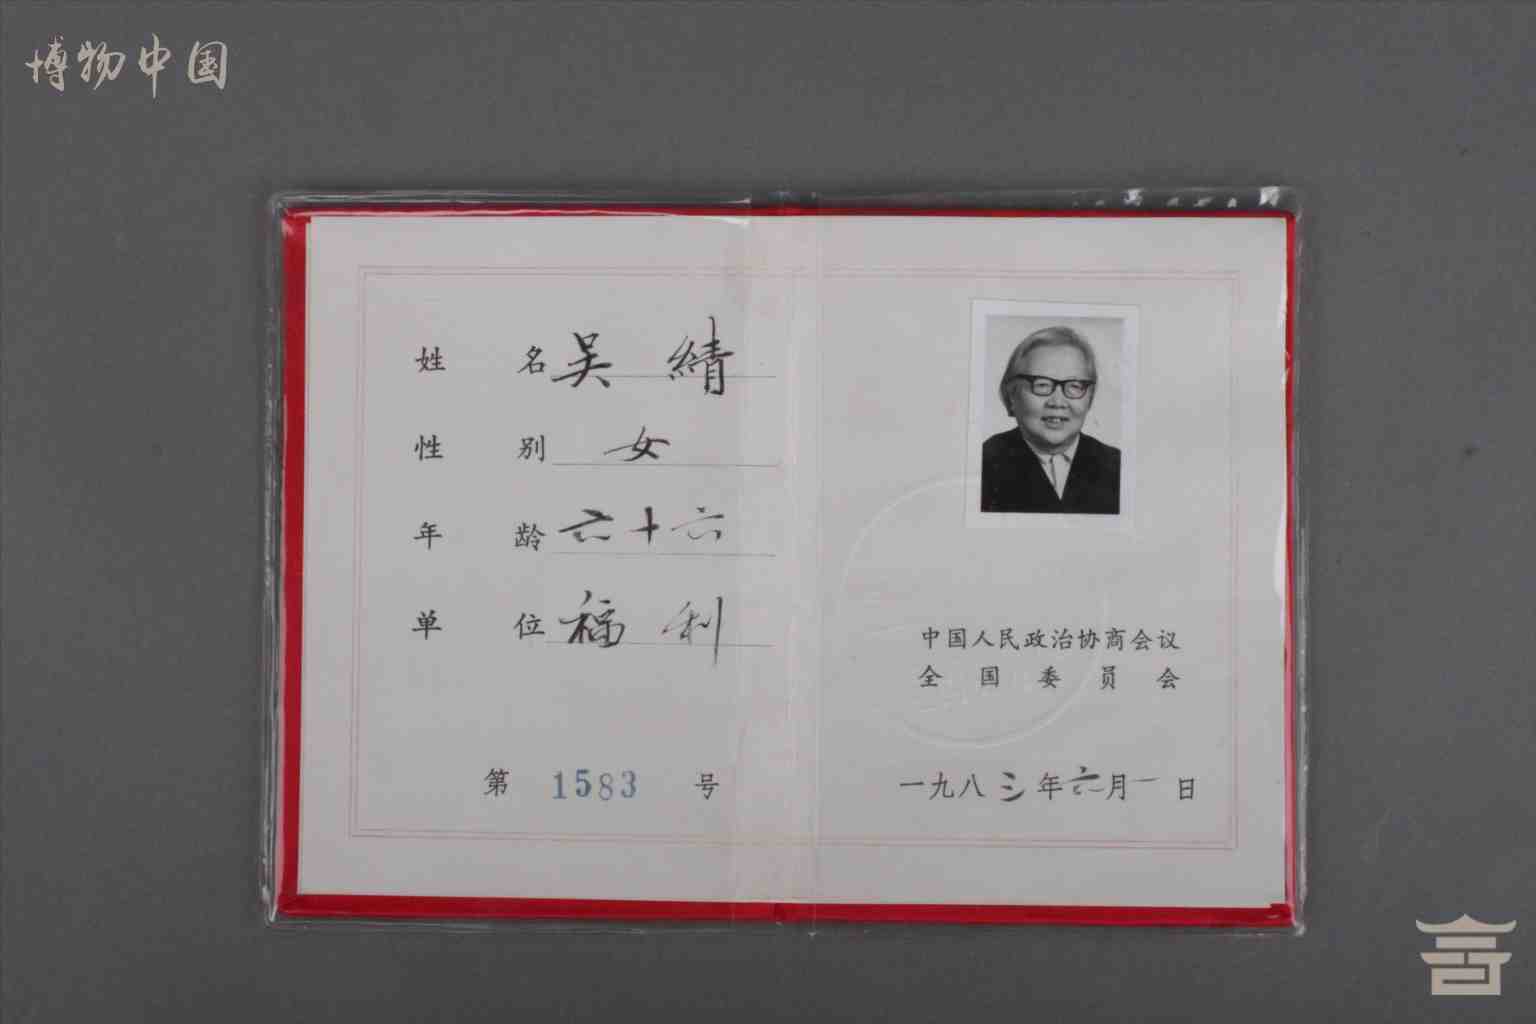 博物中国
姓 名 吴 绩
性 别 女
年 龄 六十六
单 位 福 利
第 1583 号
中国人民政治协商会议
全 国 委 员 会
一九八三年六月一日